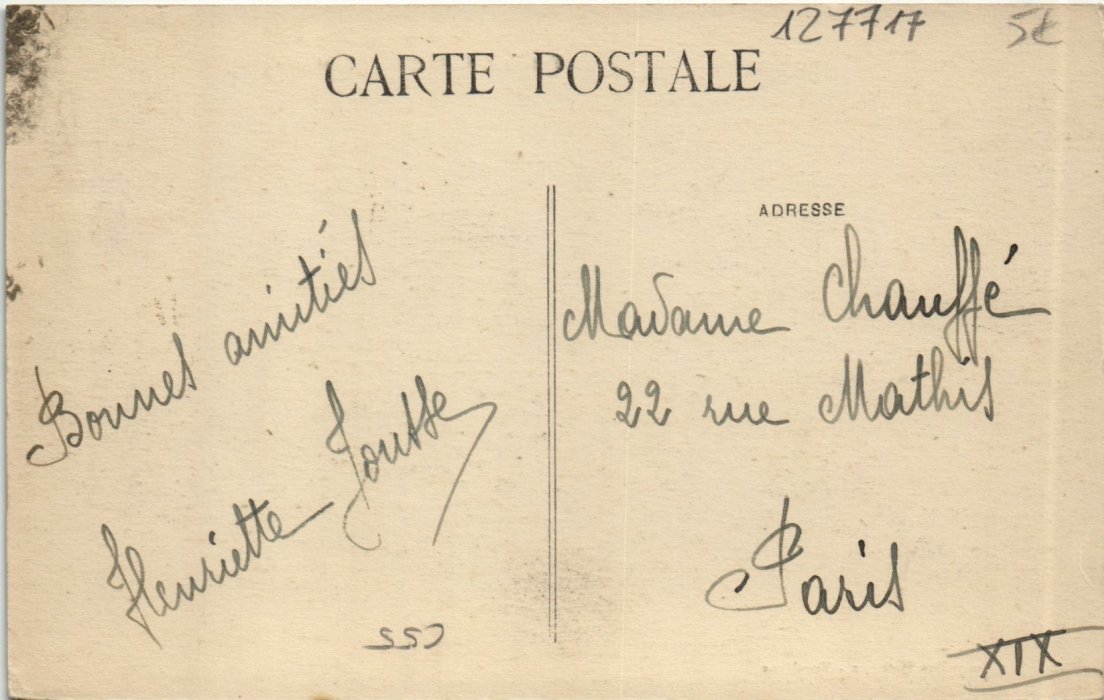 127717 5€
CARTE POSTALE
ADRESSE
Bonnes amitiés
Henriette Jousse
Madame Chauffé
22 rue Mathis
Paris
XIX